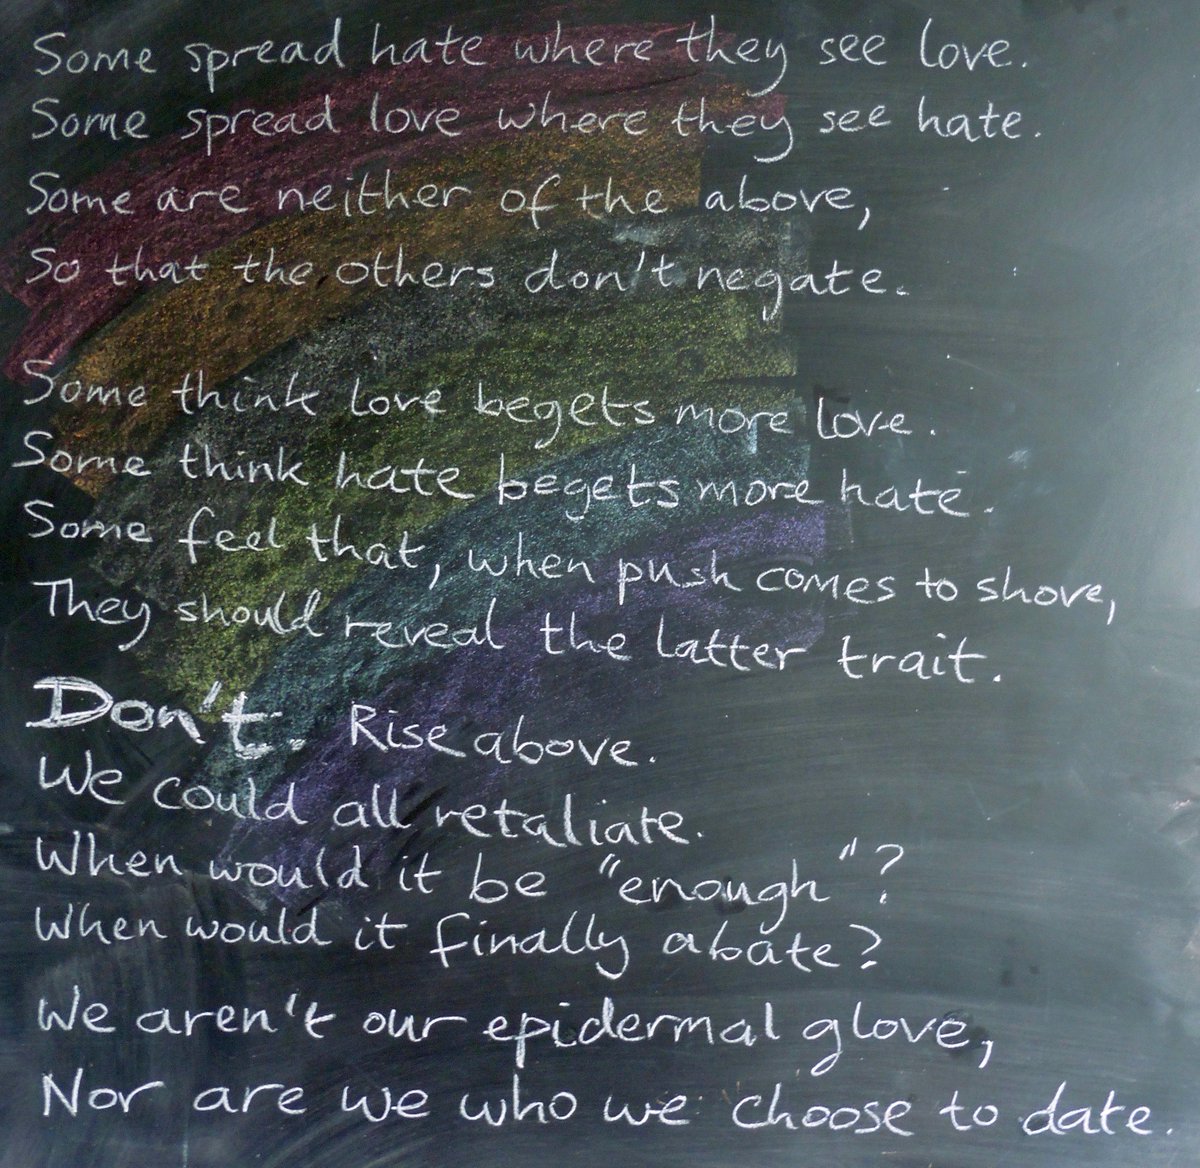 Some spread hate where they see love.
Some spread love where they see hate.
Some are neither of the above,
So that the others don't negate.
Some think love begets more love.
Some think hate begets more hate.
Some feel that, when push comes to shove,
They should reveal the latter trait.
Don't. Rise above.
We could all retaliate.
When would it be "enough"?
When would it finally abate?
We aren't our epidermal glove,
Nor are we who we choose to date.